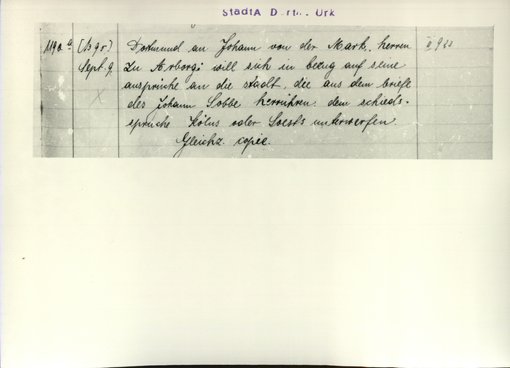 StadtA D Urk
1190a [13 9r.] Dortmund an Johann von der Mark, herren
Sept. 9. zu Arborgi will sich in bezug auf seine
ansprüche an die stadt, die aus dem briefe
des Johann Lobbe herrühren dem schieds-
spruche Kölns oder Soests unterwerfen.
Gleichz. copie.